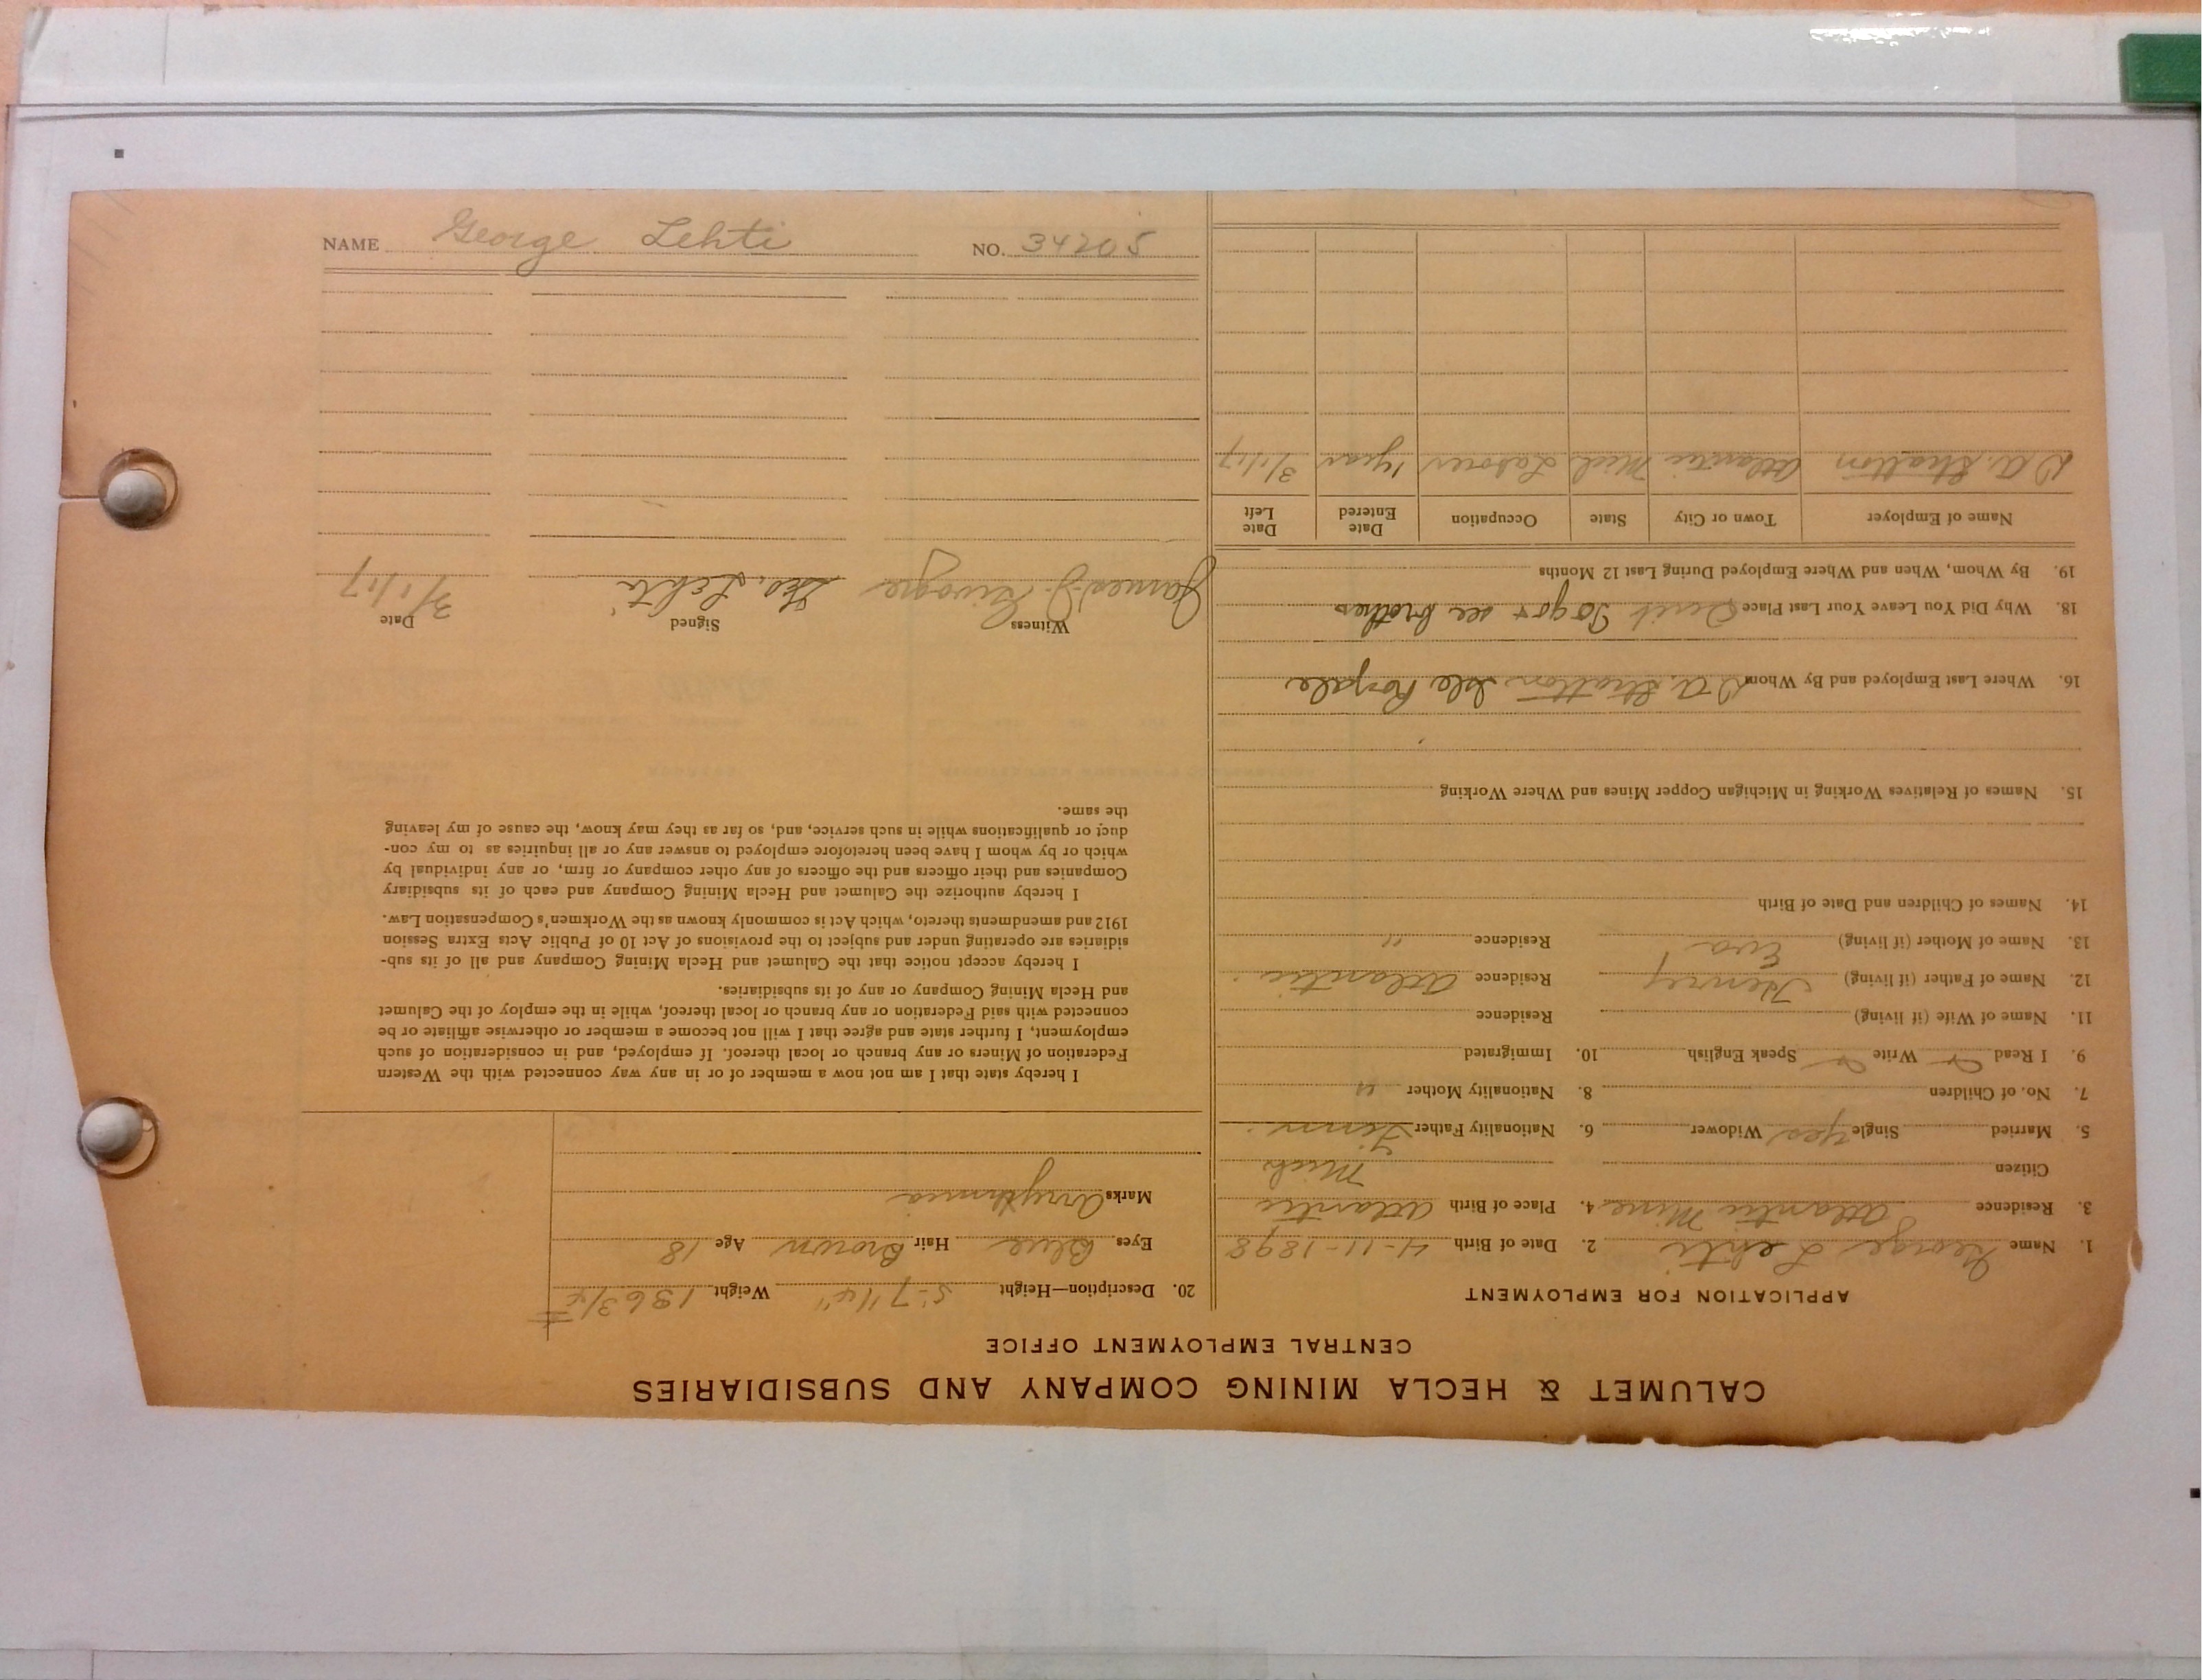 CALUMET & HECLA MINING COMPANY AND SUBSIDIARIES
CENTRAL EMPLOYMENT OFFICE
APPLICATION FOR EMPLOYMENT
1. Name George Lehti 2. Date of Birth 4-11-1898
3. Residence Atlantic Mine 4. Place of Birth Atlantic
Citizen Mich
5. Married Single yes Widower 6. Nationality Father Finn
7. No. of Children 8. Nationality Mother "
9. I Read Write Speak English 10. Immigrated
11. Name of Wife (if living) Residence
12. Name of Father (if living) Henry Residence Atlantic
13. Name of Mother (if living) Eva Residence "
14. Names of Children and Date of Birth
15. Names of Relatives Working in Michigan Copper Mines and Where Working
16. Where Last Employed and By Whom D A. Stratton Isle Royale
18. Why Did You Leave Your Last Place Quit To go + see brother
19. By Whom, When and Where Employed During Last 12 Months
Name of Employer Town or City State Occupation Date Entered Date Left
D A. Stratton Atlantic Mich Laborer 1 year 3/1/17
20. Description—Height 5-7 1/4" Weight 136 3/4
Eyes Blue Hair Brown Age 18
Marks
I hereby state that I am not now a member of or in any way connected with the Western
Federation of Miners or any branch or local thereof. If employed, and in consideration of such
employment, I further state and agree that I will not become a member or otherwise affiliate or be
connected with said Federation or any branch or local thereof, while in the employ of the Calumet
and Hecla Mining Company or any of its subsidiaries.
I hereby accept notice that the Calumet and Hecla Mining Company and all of its sub-
sidiaries are operating under and subject to the provisions of Act 10 of Public Acts Extra Session
1912 and amendments thereto, which Act is commonly known as the Workmen's Compensation Law.
I hereby authorize the Calumet and Hecla Mining Company and each of its subsidiary
Companies and their officers and the officers of any other company or firm, or any individual by
which or by whom I have been heretofore employed to answer any or all inquiries as to my con-
duct or qualifications while in such service, and, so far as they may know, the cause of my leaving
the same.
Witness Signed Date
James J. Geo. Lehti 3/1/17
NAME George Lehti NO. 34205